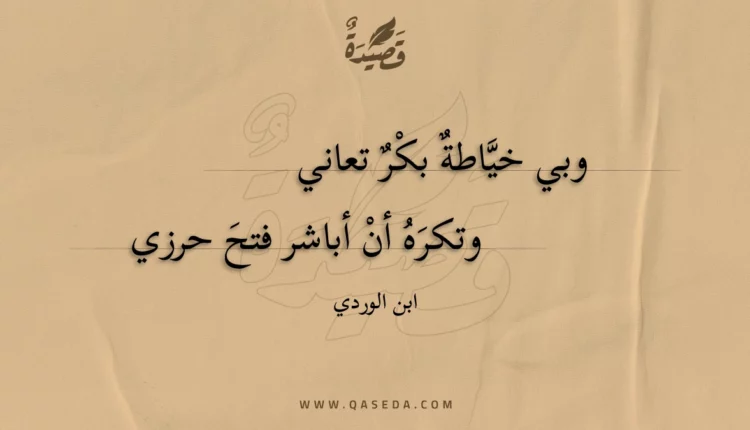 قَصِيْدَةٌ
وبي خيَّاطةٌ بكْرٌ تعاني
وتكرَهُ أنْ أباشر فتحَ حرزي
ابن الوردي
WWW.QASEDA.COM